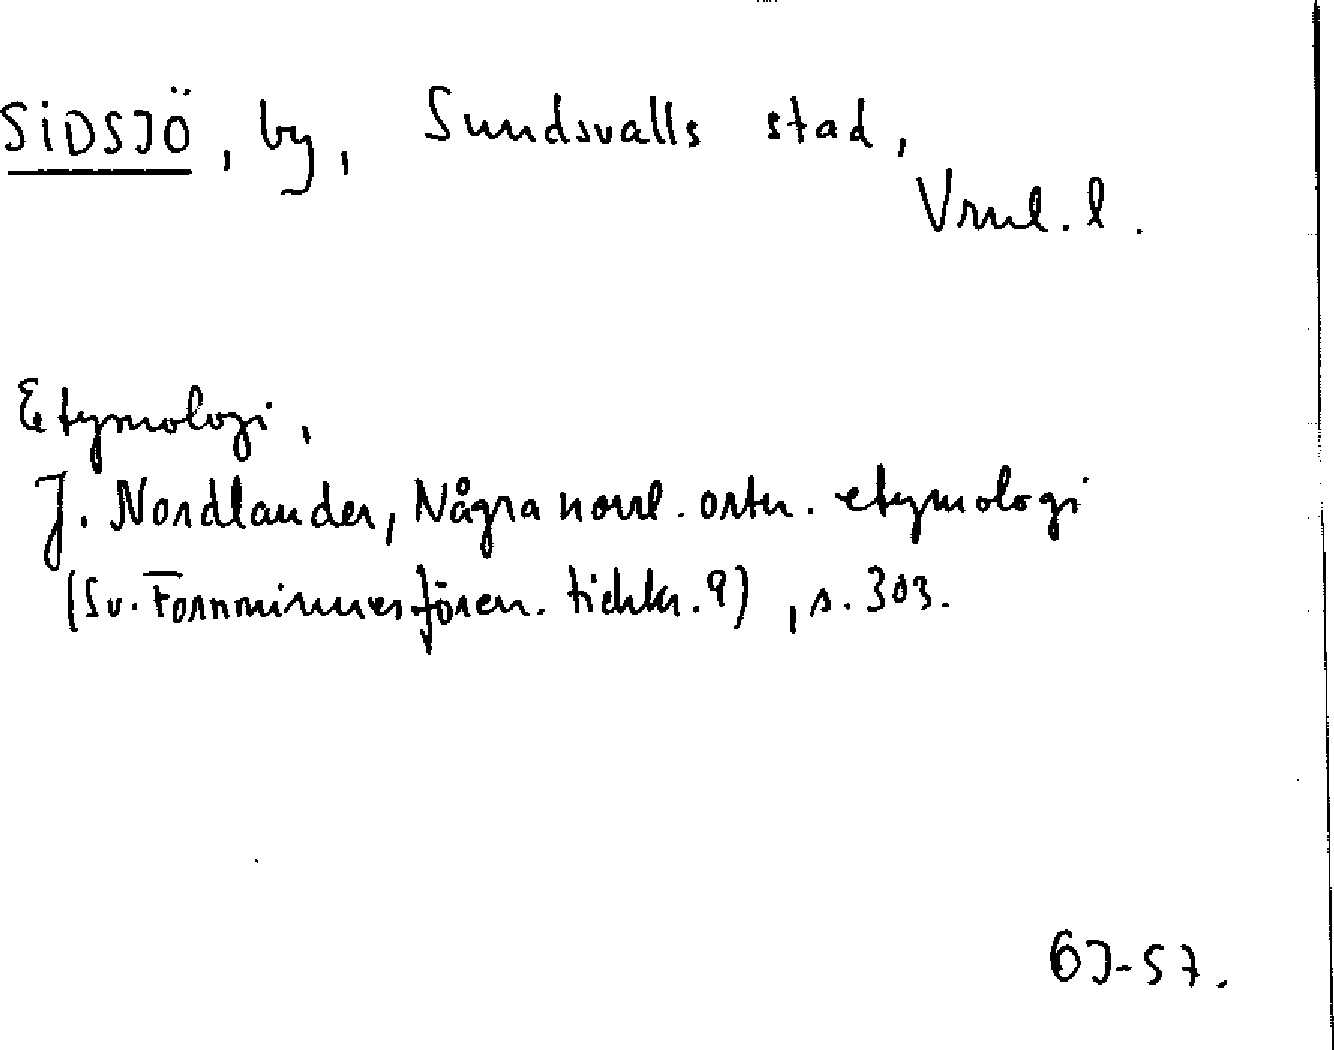 SIDSJÖ, by, Sundsvalls stad,
Vrnl. l.
Etymologi,
J. Nordlander, Några norrl. ortn. etymologi
(Sv. Fornminnesfören. tidskr. 9), s. 303.
GJ-57.